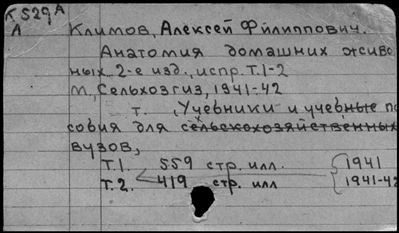 К529А
Л
Климов, Алексей Филиппович.
Анатомия домашних живо
ных. 2-е изд., испр. Т.1-2
М, Сельхозгиз, 1941-42
т. , Учебники и учебные по
собия для сельскохозяйственных
вузов,
Т.1. 559 стр. илл. 1941
Т.2. 419 стр. илл 1941-42